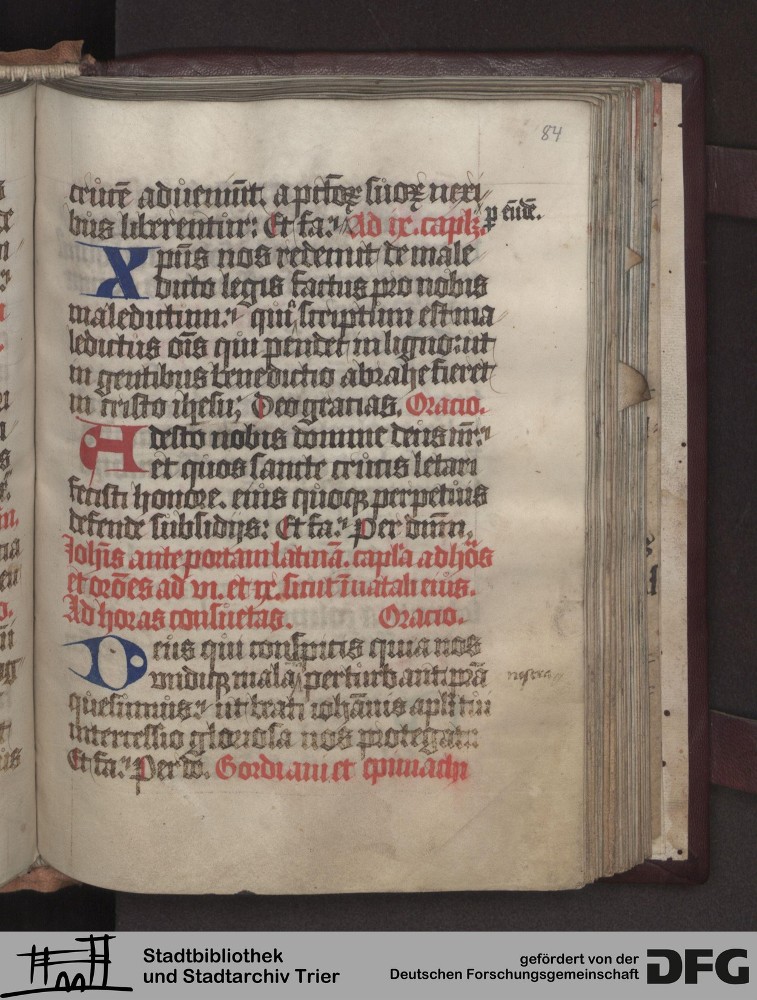 84
crucē adueniūt, a pctōꝝ suoꝝ nexi
bus liberentur: Et fa. Ad ix. capłꝫ. p eūdē.
Xpūs nos redemit de male
dicto legis factus pro nobis
maledictum: quia scriptum est ma
ledictus oīs qui pendet in ligno: ut
in gentibus benedictio abrahe fieret
in cristo ihesu; Deo gratias. Oracio.
Adesto nobis domine deus nr̄:
et quos sancte crucis letari
fecisti honore. eius quoqꝫ perpetuis
defende subsidijs: Et fa. Per dūm,
Johīs ante portam latinā. capła ad hōs
et orōēs ad vi. et ix. sicut ī natali eius.
Ad horas consuetas. Oracio.
Deus qui conspicis quia nos
vndiqꝫ mala perturbant: p̄ā nostra
quesumus: ut beati iohānis apłi tui
intercessio gloriosa nos protegat:
Et fa. Per do. Gordiani et epimachi
Stadtbibliothek
und Stadtarchiv Trier
gefördert von der
Deutschen Forschungsgemeinschaft
DFG